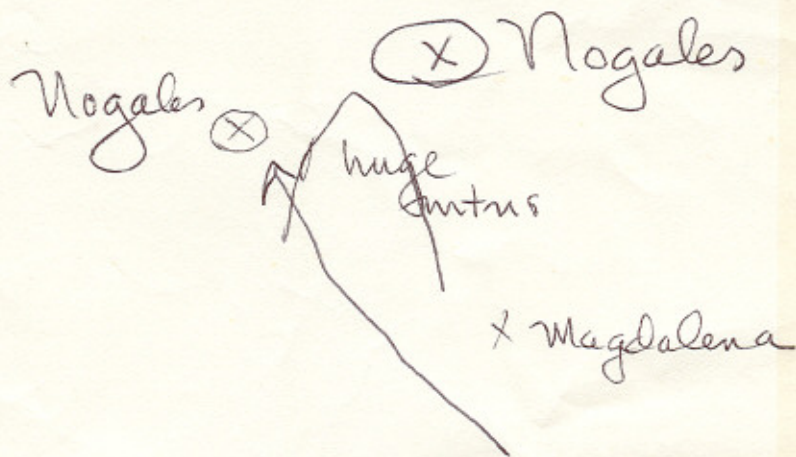 X Nogales
Nogales X
huge
mtns
X Magdalena